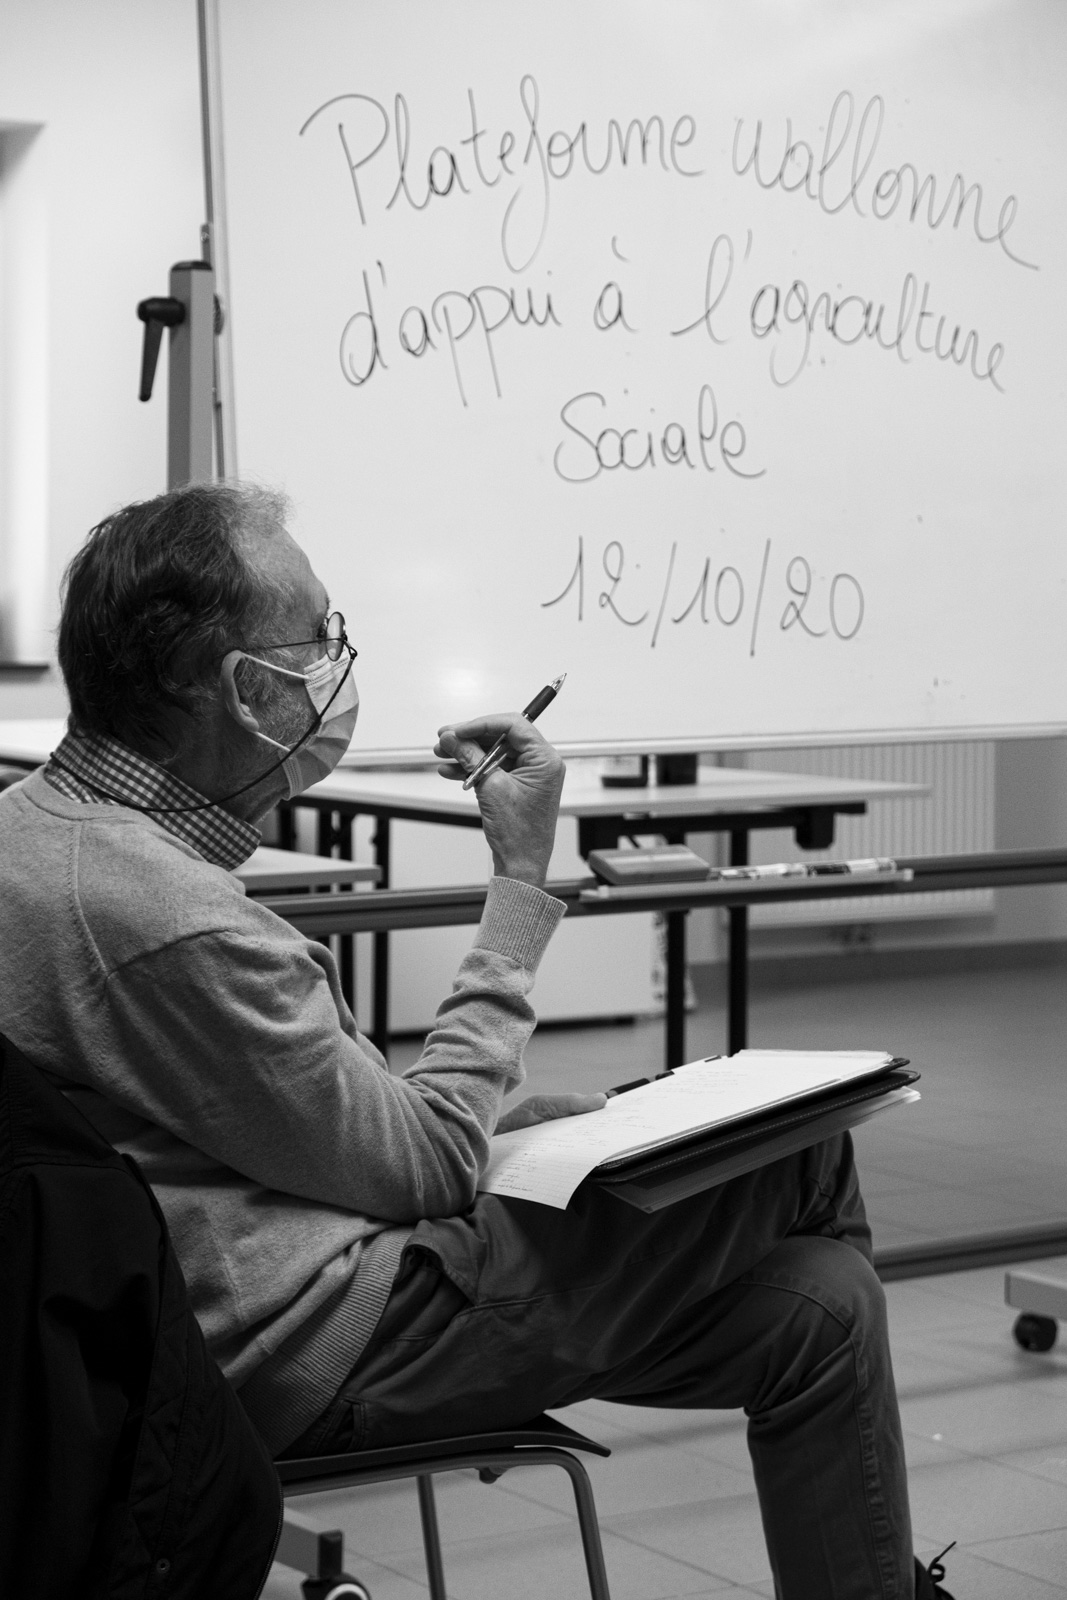 Plateforme wallonne
d'appui à l'agriculture
Sociale
12/10/20